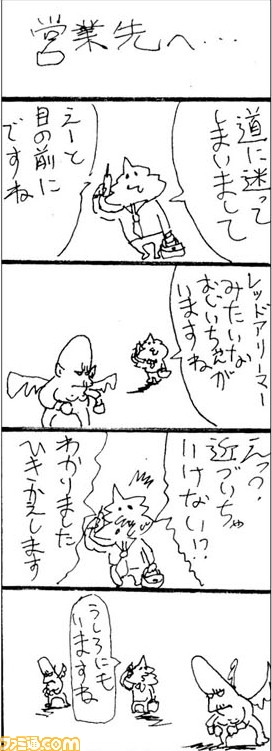 営業先へ・・・
道に迷って
しまいまして
えーと
目の前に
ですね
レッドアリーマー
みたいな
おじいちゃんが
いますね
えっ?
近づいちゃ
いけない!?
わかりました
ひきかえします
うしろにも
いますね
ファミ通.com